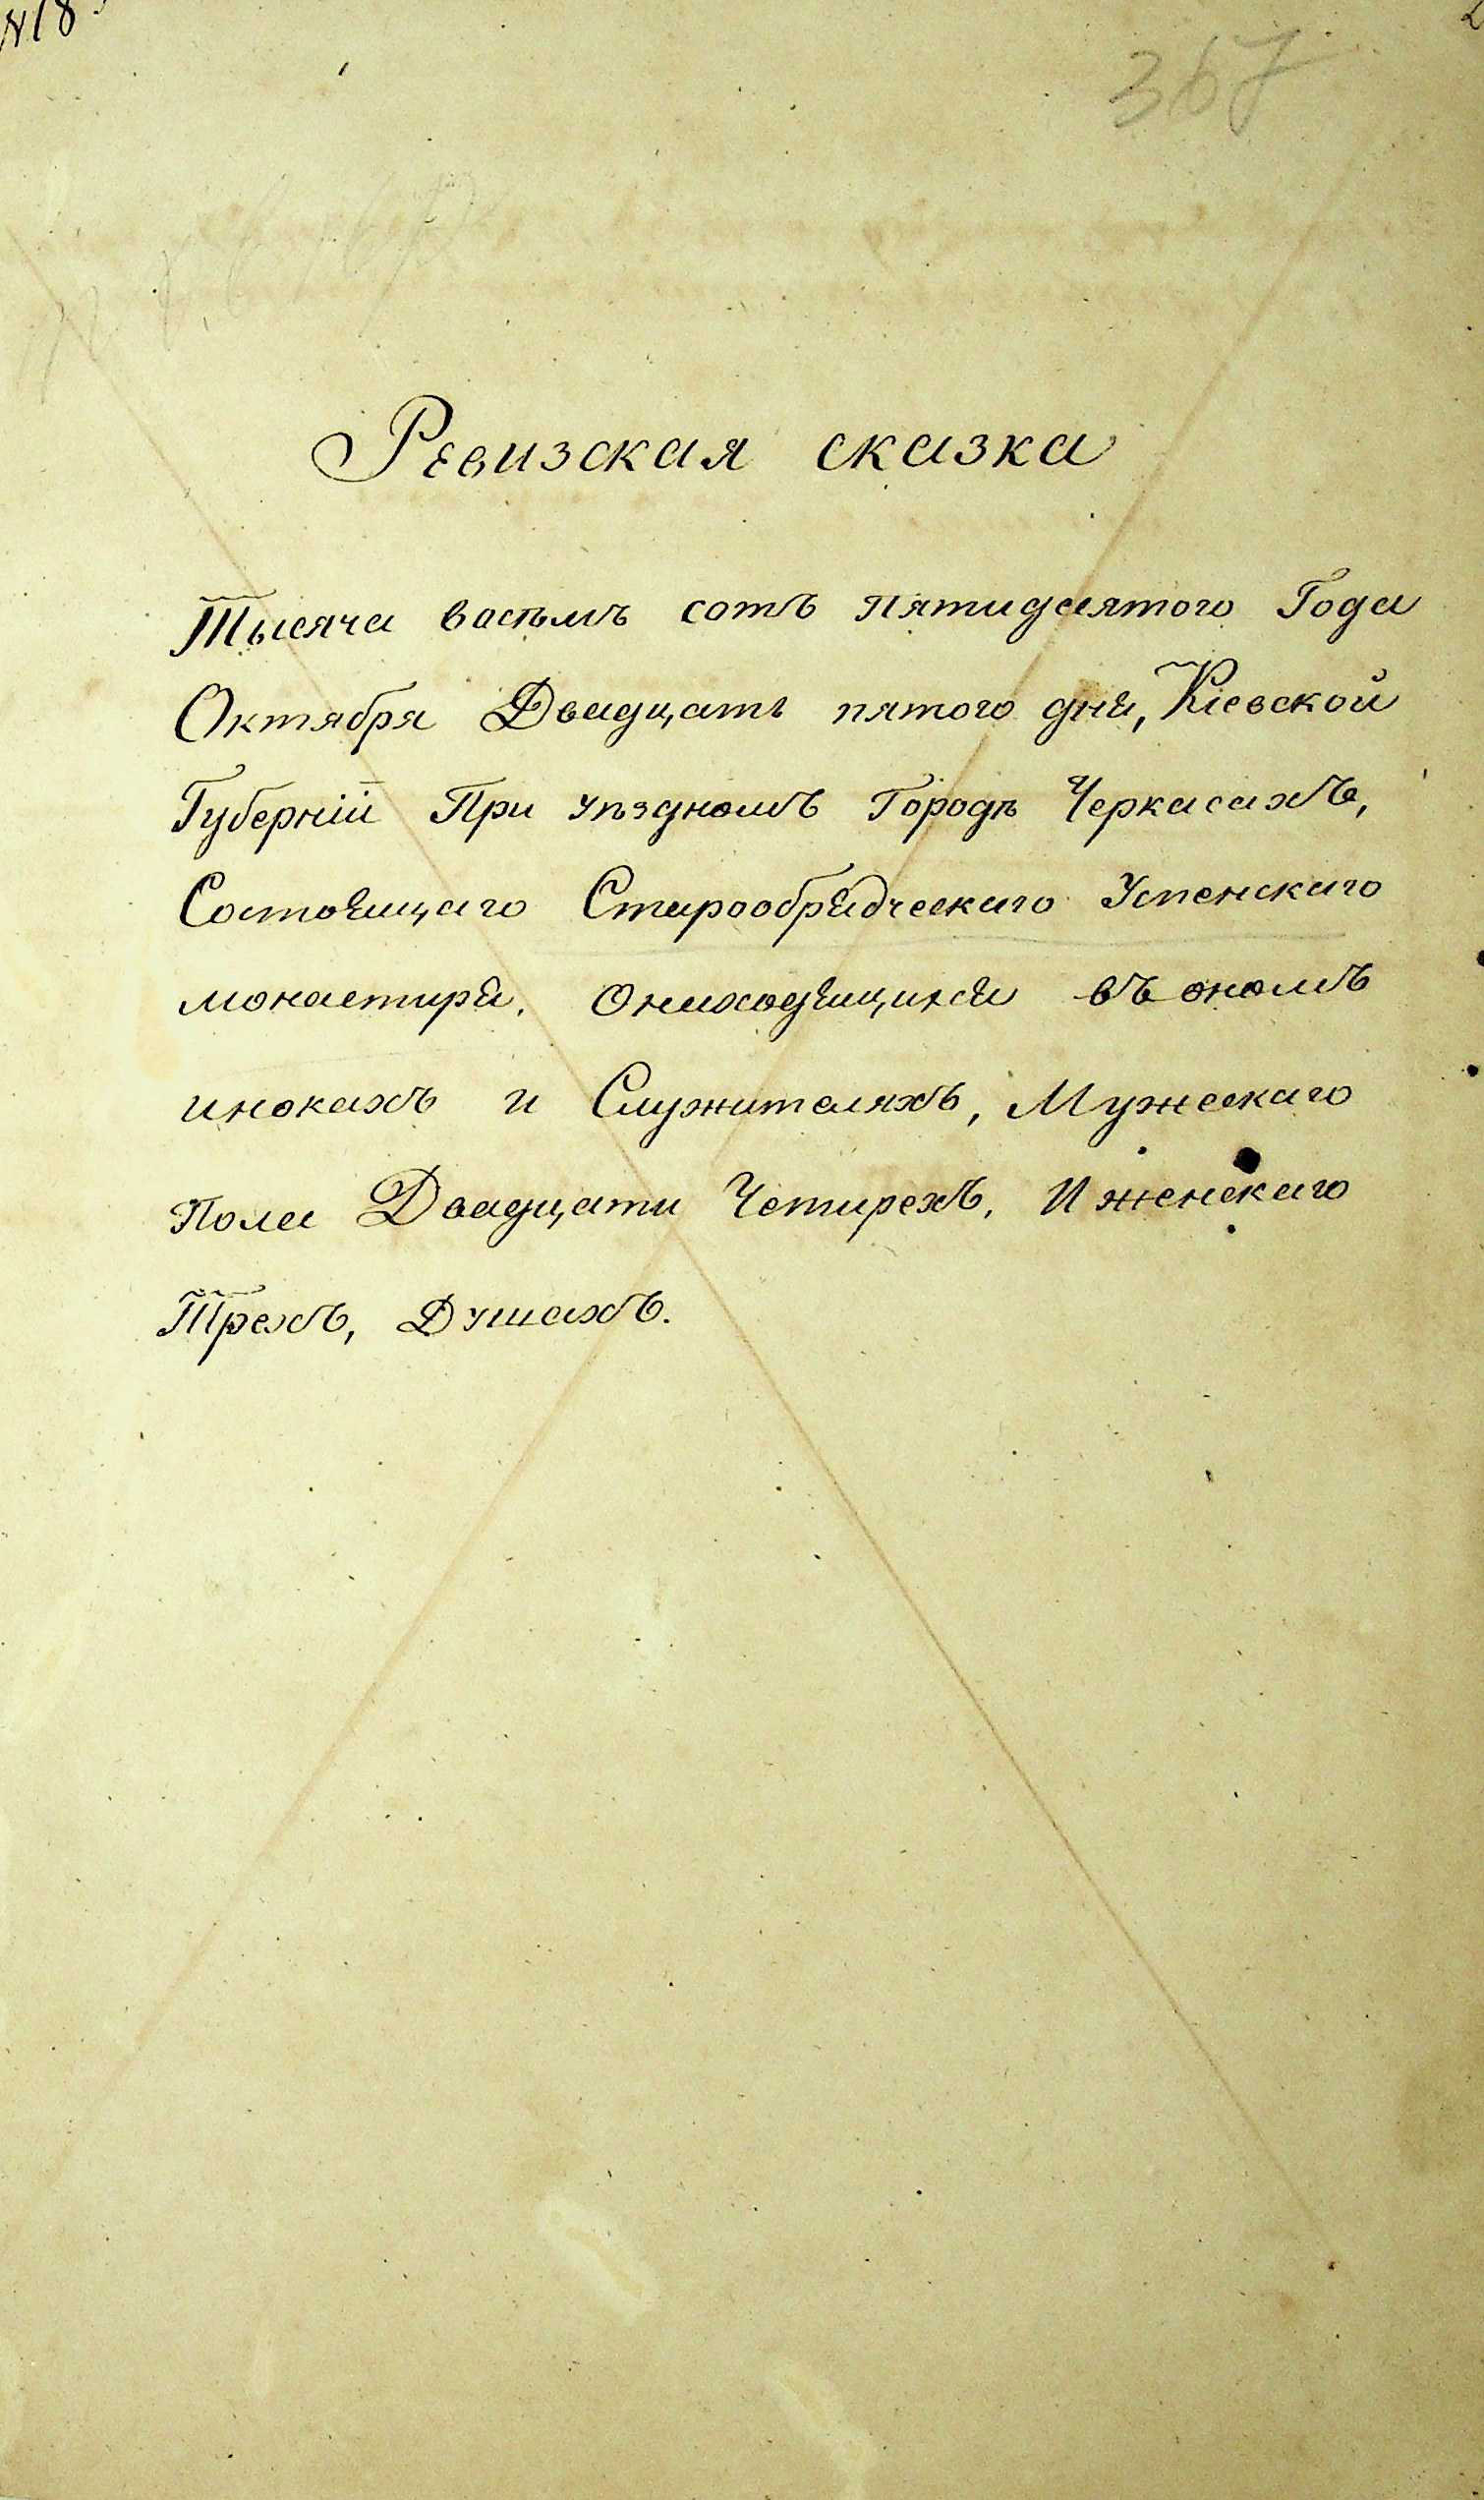 N18
367
Ревизская сказка
Тысяча восъмъ сотъ пятидсятого Года
Октября Двадцать пятого дня, Кіевской
Губерніи При уѣздномъ Городѣ Черкасахъ,
Состоящаго Старообрядческаго Успенскаго
монастиря, Онаходящихся въ ономъ
инокахъ и Служителяхъ, Мужескаго
Пола Двадцати Четирехъ, И женскаго
Трехъ, Душахъ.